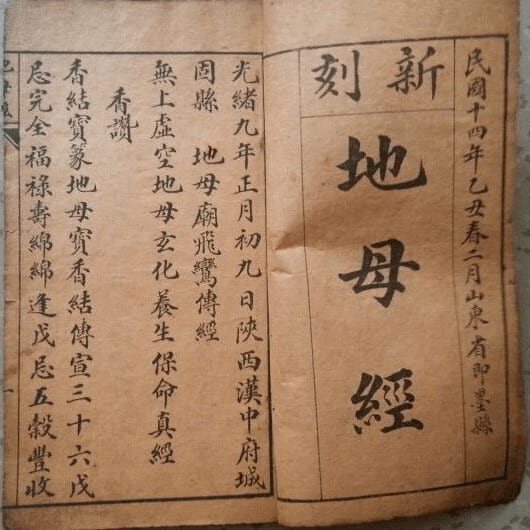 民國十四年乙丑春二月山東省即墨縣
新刻
地母經
光緒九年正月初九日陝西漢中府城
固縣 地母廟飛鸞傳經
無上虛空地母玄化養生保命真經
香讚
香結寶篆地母寶香結傳宣三十六戊
忌完全福祿壽綿綿逢戊忌五穀豐收
地母經
一